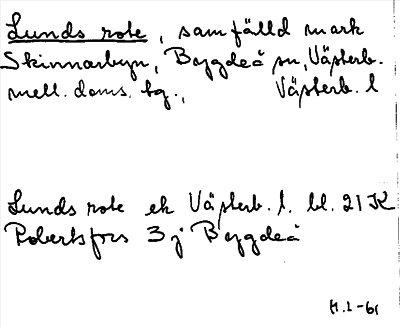 Lunds rote, samfälld mark
Skinnarbyn, Bygdeå sn, Västerb.
mell. doms. bg., Västerb. l
Lunds rote ek Västerb. l. bl. 21 K
Robertsfors 3 j Bygdeå
H.I-61